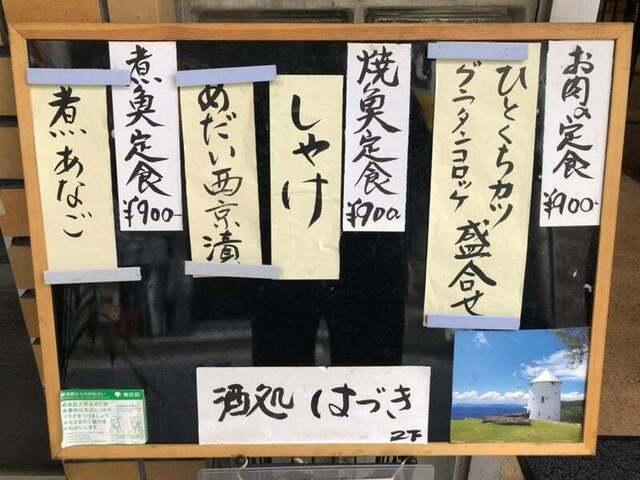 お肉の定食
¥900-
ひとくちカツ
グラタンコロッケ
盛合せ
焼魚定食
¥900-
しゃけ
めだい西京漬
煮魚定食
¥900-
煮あなご
酒処 はづき
2F